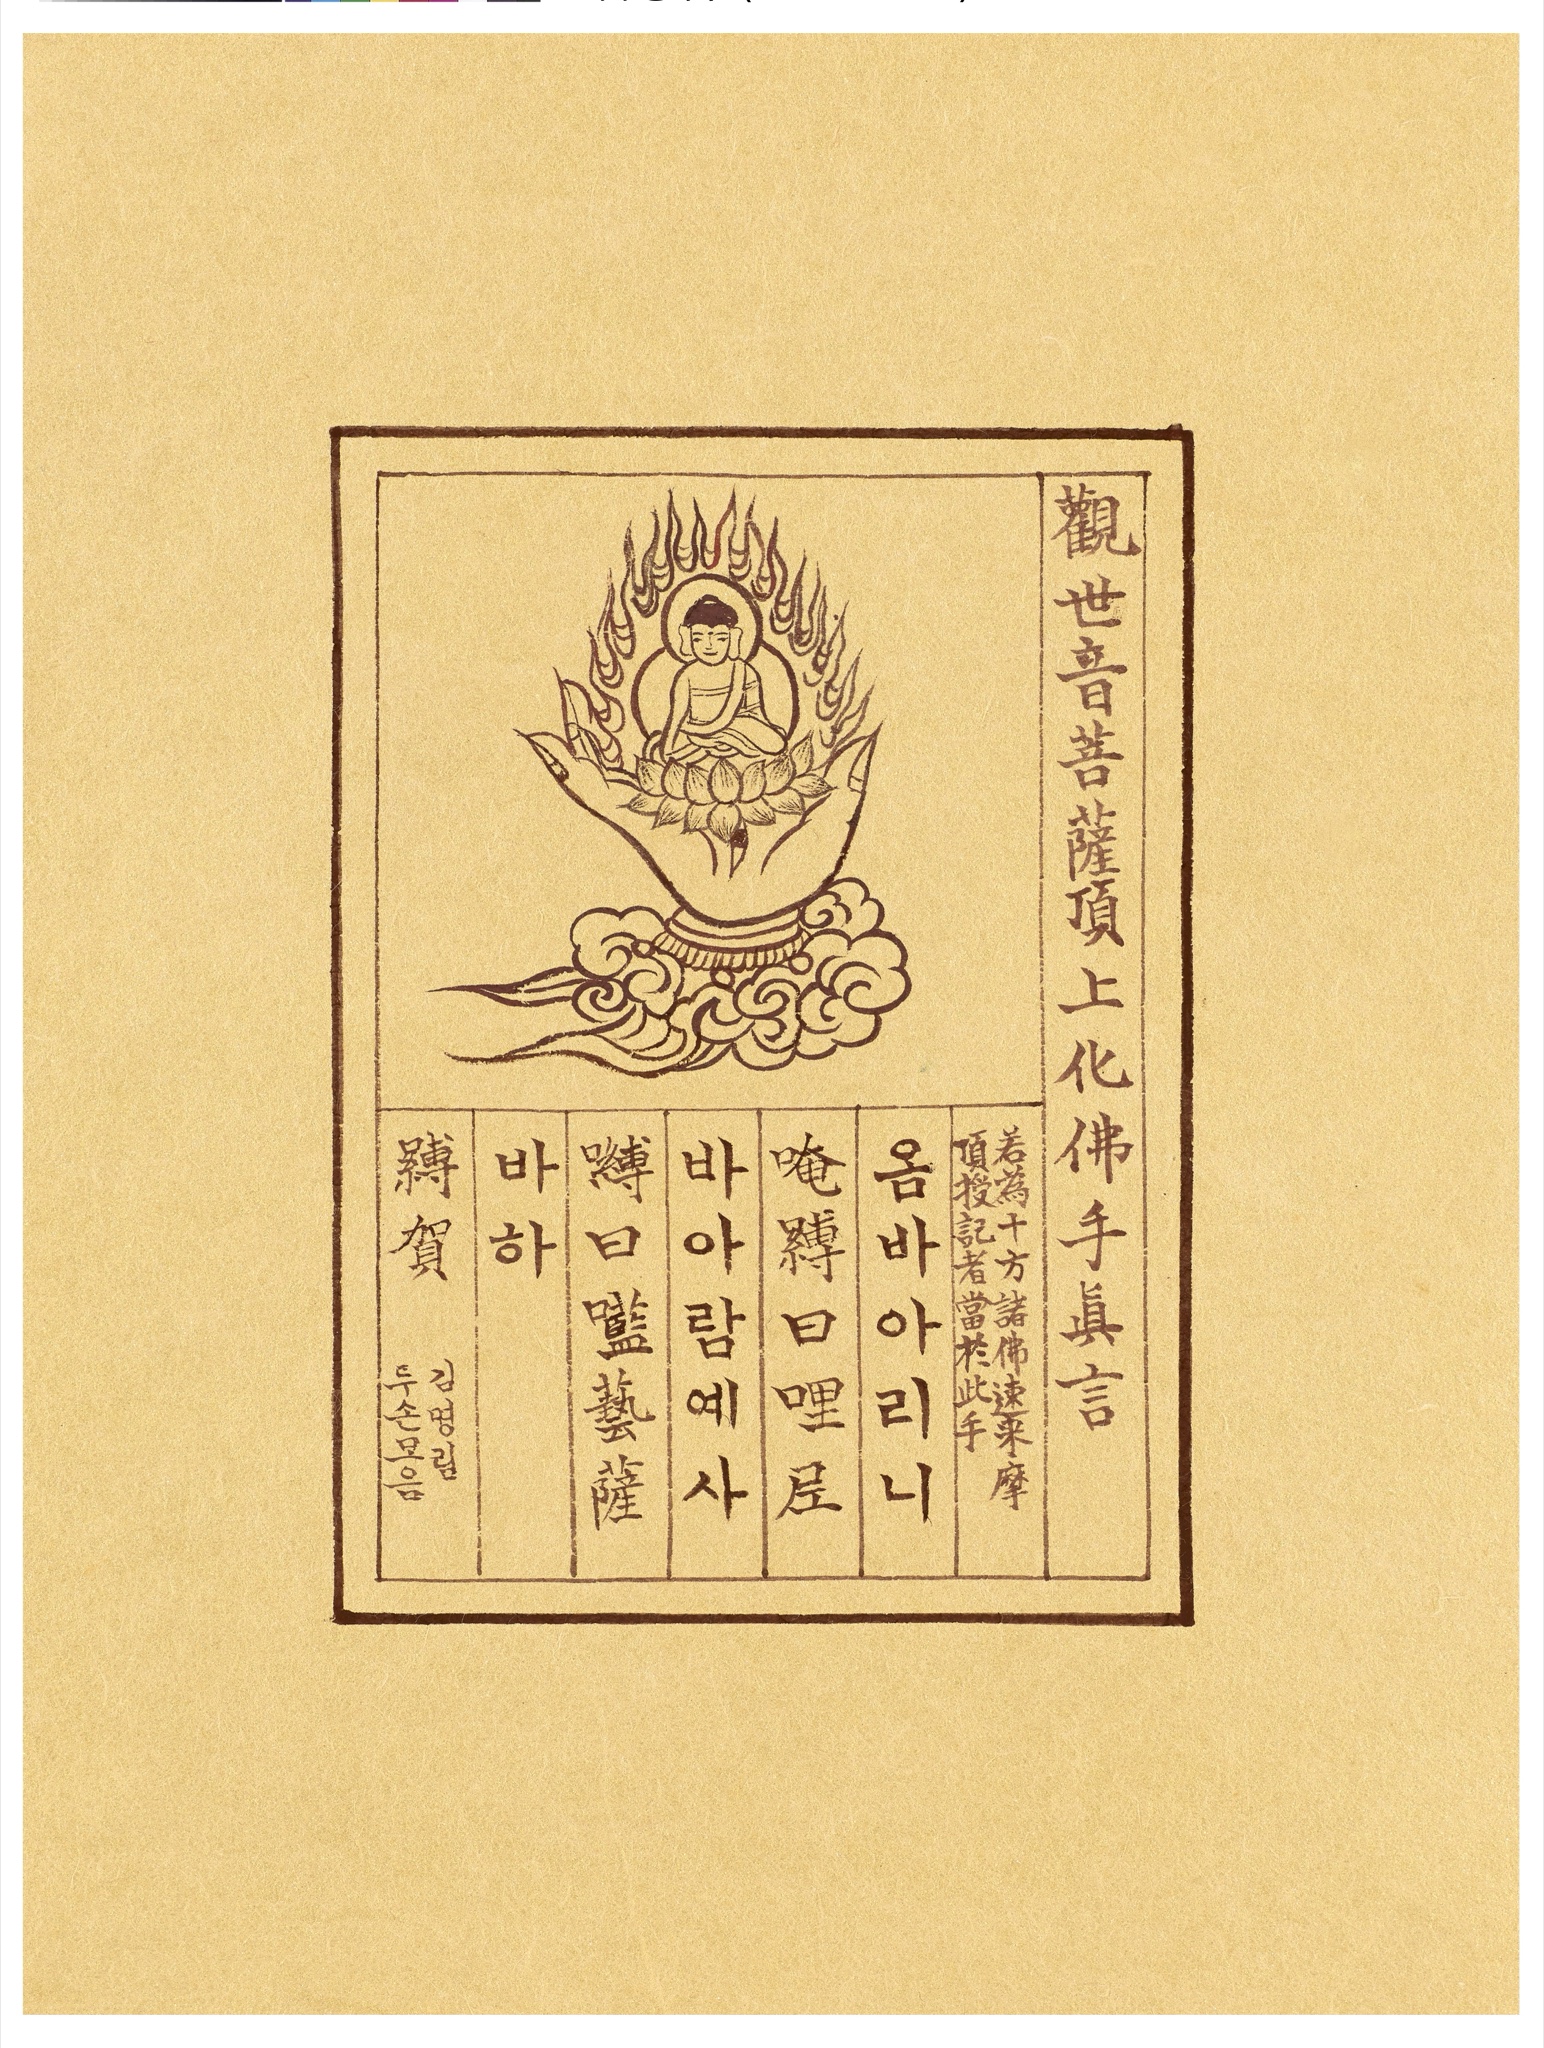 觀世音菩薩頂上化佛手眞言
若為十方諸佛速來摩
頂授記者當於此手
옴바아리니
唵嚩曰哩
바아람예사
嚩曰囕藝薩
바하
嚩賀
김명림
두손모음